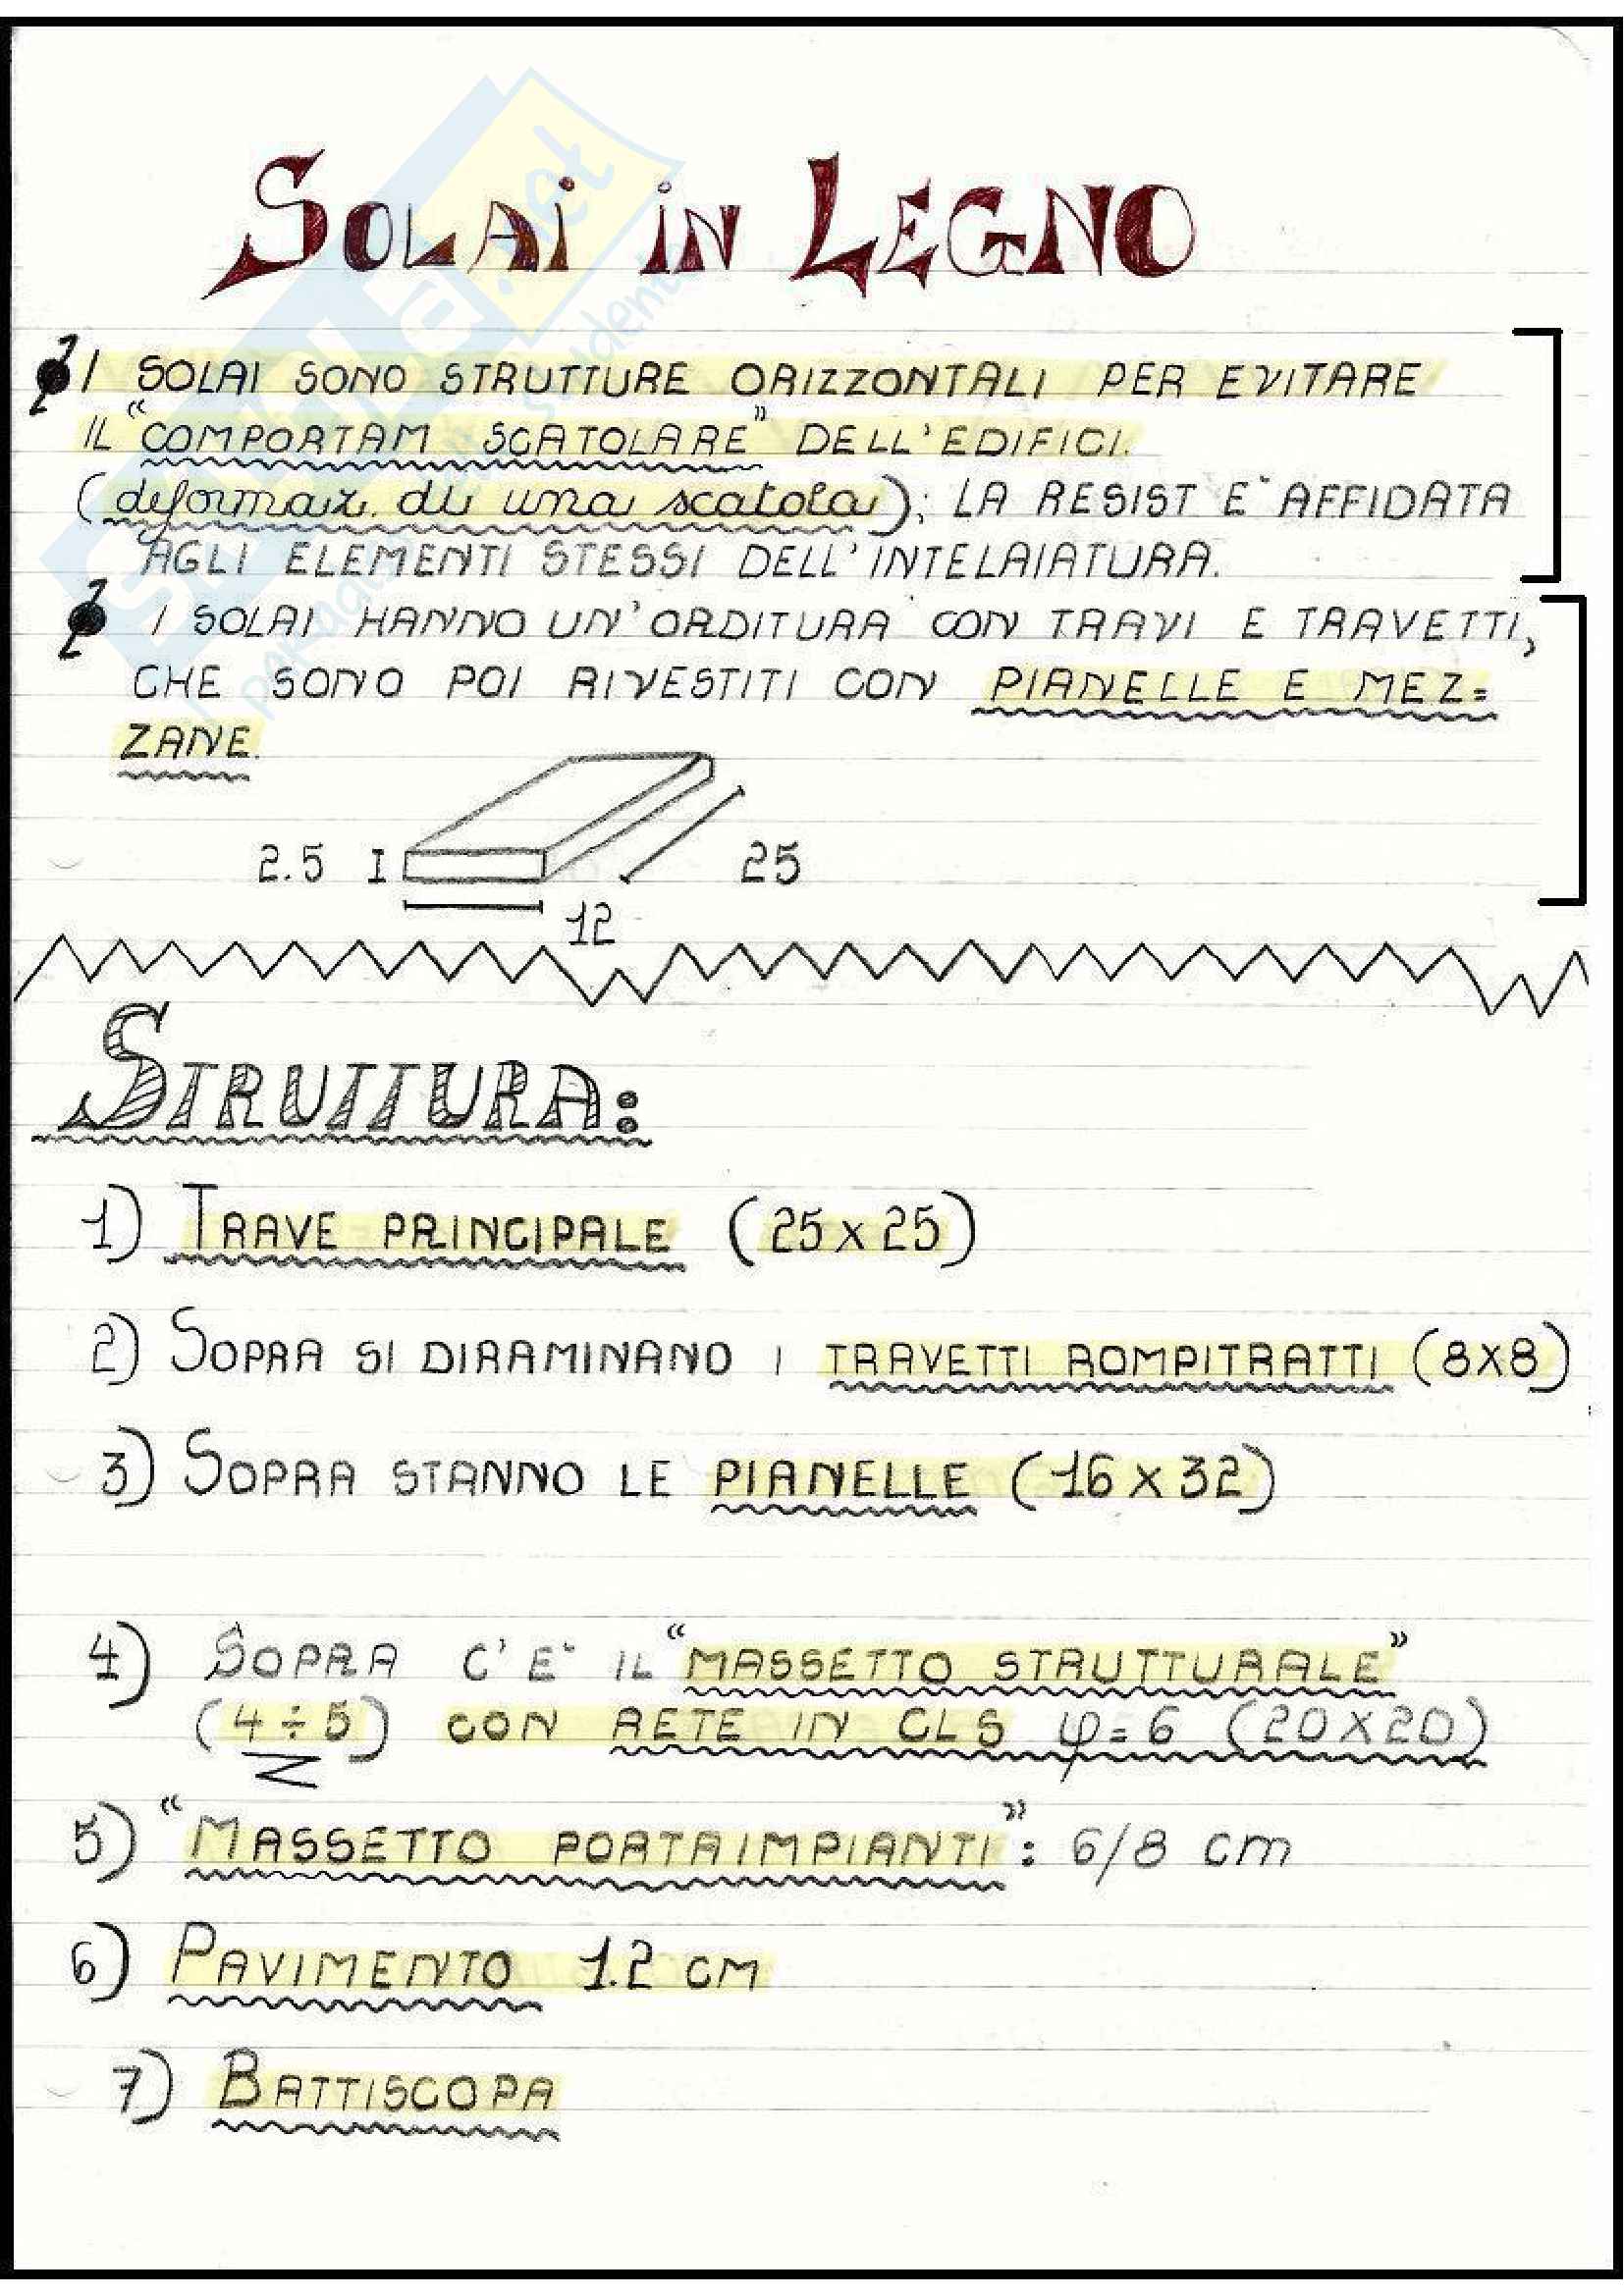 SOLAI IN LEGNO
I SOLAI SONO STRUTTURE ORIZZONTALI PER EVITARE
IL "COMPORTAM SCATOLARE" DELL'EDIFICI.
(deformaz. di una scatola); LA RESIST E` AFFIDATA
AGLI ELEMENTI STESSI DELL'INTELAIATURA.
I SOLAI HANNO UN'ORDITURA CON TRAVI E TRAVETTI,
CHE SONO POI RIVESTITI CON PIANELLE E MEZ=
ZANE.
2.5
25
12
STRUTTURA:
1) TRAVE PRINCIPALE (25x25)
2) SOPRA SI DIRAMINANO I TRAVETTI ROMPITRATTI (8x8)
3) SOPRA STANNO LE PIANELLE (16x32)
4) SOPRA C'E` IL "MASSETTO STRUTTURALE"
(4÷5) CON RETE IN CLS φ=6 (20x20)
5) "MASSETTO PORTAIMPIANTI": 6/8 cm
6) PAVIMENTO 1.2 cm
7) BATTISCOPA